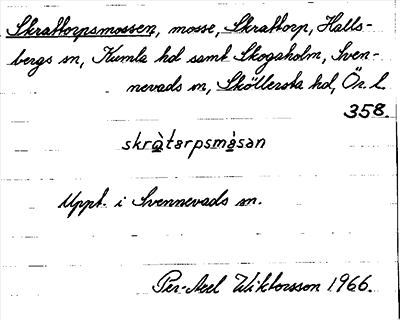 Skrattorpsmossen, mosse, Skrattorp, Halls-
bergs sn, Kumla hd samt Skogaholm, Sven-
nevads sn, Sköllersta hd, Ör. l.
358.
skràtarpsmåsan
Uppt. i Svennevads sn.
Per-Axel Wiktorsson 1966.